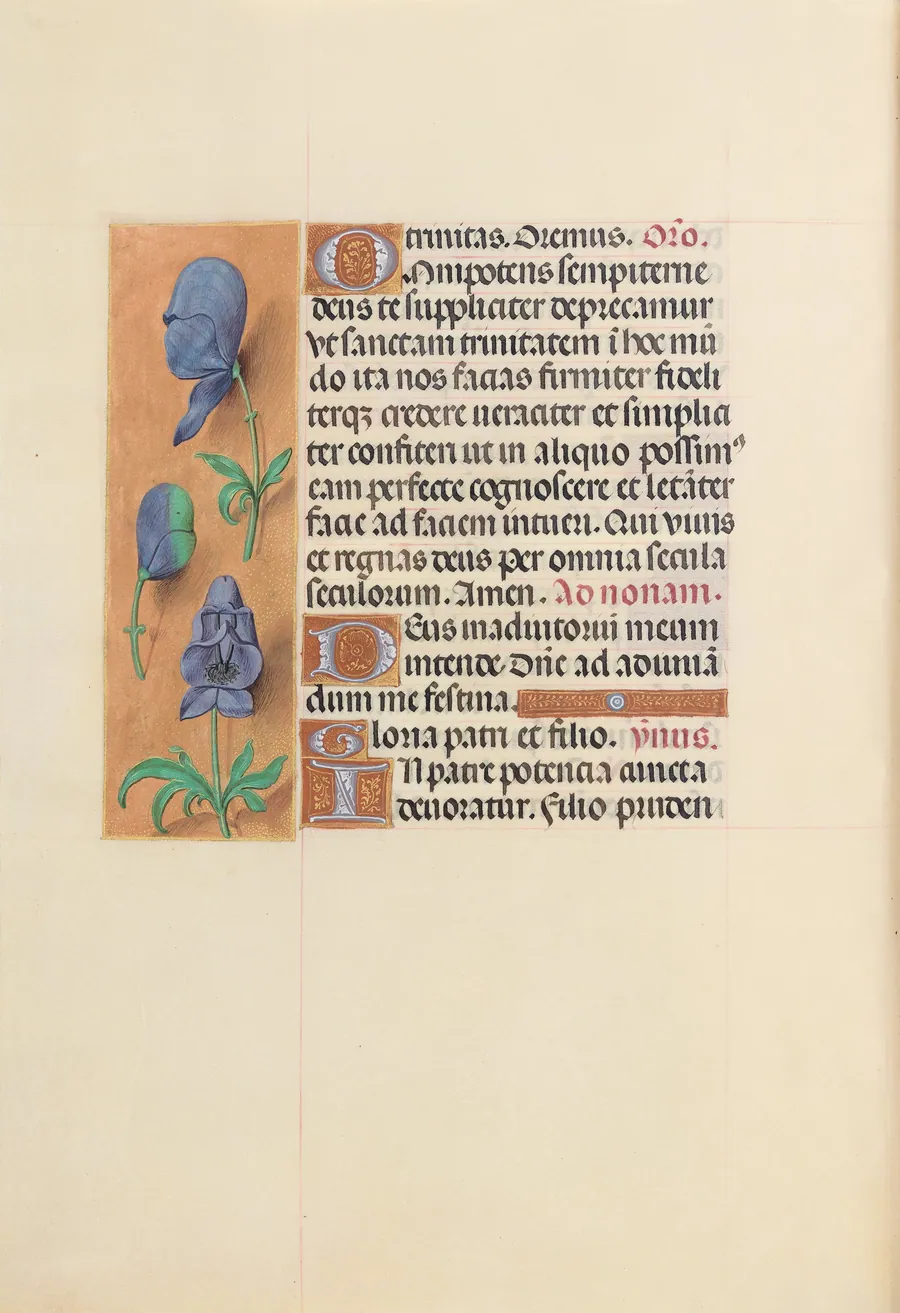 O trinitas. Oremus. Or̃o.
Mnipotens sempiterne
deus te suppliciter deprecamur
vt sanctam trinitatem ī hoc mū
do ita nos facias firmiter fideli
terqꝫ credere ueraciter et simplici
ter confiteri ut in aliquo possimꝰ
eam perfecte cognoscere et letāter
facie ad faciem intueri. Qui viuis
et regnas deus per omnia secula
seculorum. Amen. Ad nonam.
DEus in adiutoriū meum
intende Dñe ad adiuuā
dum me festina.
Gloria patri et filio. ỹnus.
IN patre potencia cuncta
deuoratur. Filio pruden